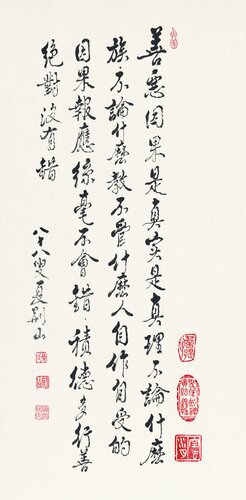 善惡因果是真實是真理不論什麼
族不論什麼教不管什麼人自作自受的
因果報應絲毫不會錯積德多行善
絕對沒有錯
八十八叟夏荊山